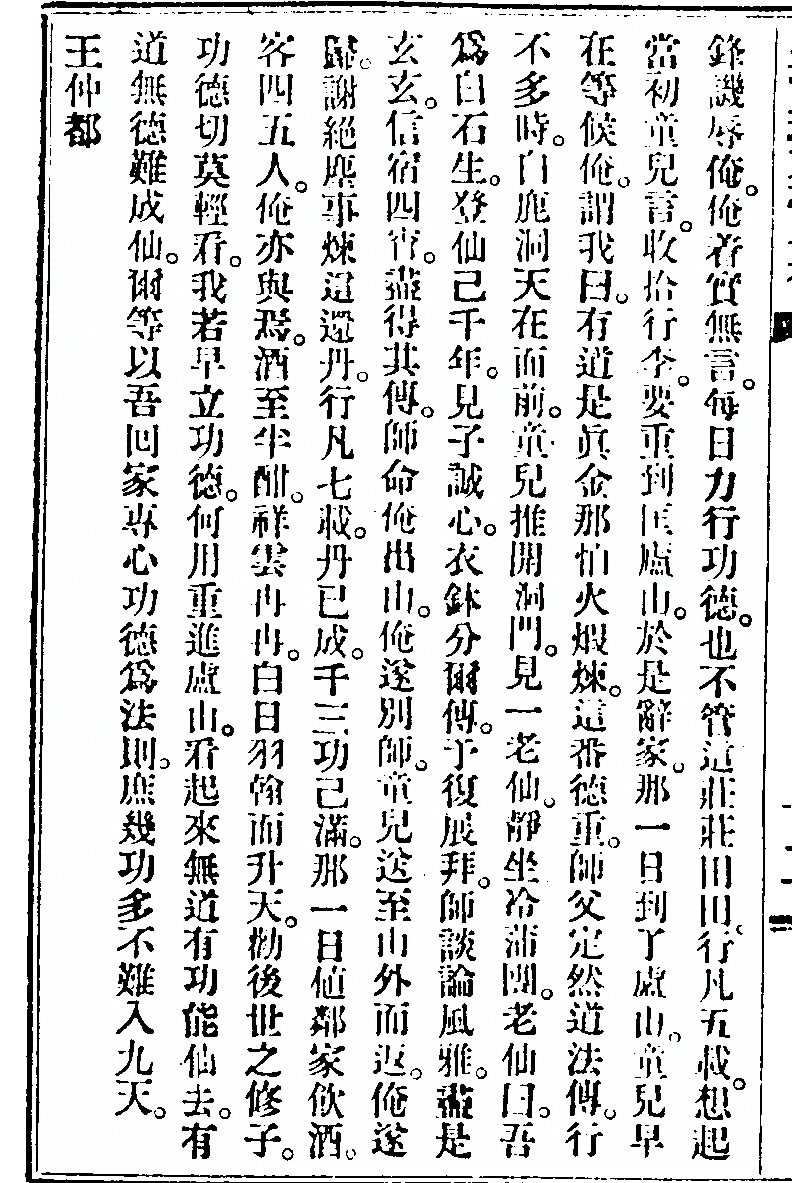 鋒譏辱俺。俺着實無言。每日力行功德。也不管這莊莊田田。行凡五載。想起
當初童兒言。收拾行李。要重到匡廬山。於是辭家。那一日到了廬山。童兒早
在等候俺。謂我曰。有道是眞金那怕火煅煉。這番德重。師父定然道法傳。行
不多時。白鹿洞天在面前。童兒推開洞門。見一老仙。靜坐冷蒲團。老仙曰。吾
爲白石生。登仙已千年。見子誠心。衣鉢分爾傳。予復展拜。師談論風雅。盡是
玄玄。信宿四宵。盡得其傳。師命俺出山。俺遂別師。童兒送至山外而返。俺遂
歸。謝絕塵事煉這還丹。行凡七載。丹已成。千三功已滿。那一日値鄰家飲酒。
客四五人。俺亦與焉。酒至半酣。祥雲冉冉。白日羽翰而升天。勸後世之修子。
功德切莫輕看。我若早立功德。何用重進廬山。看起來無道有功能仙去。有
道無德難成仙。爾等以吾回家專心功德爲法則。庶幾功多不難入九天。
王仲都